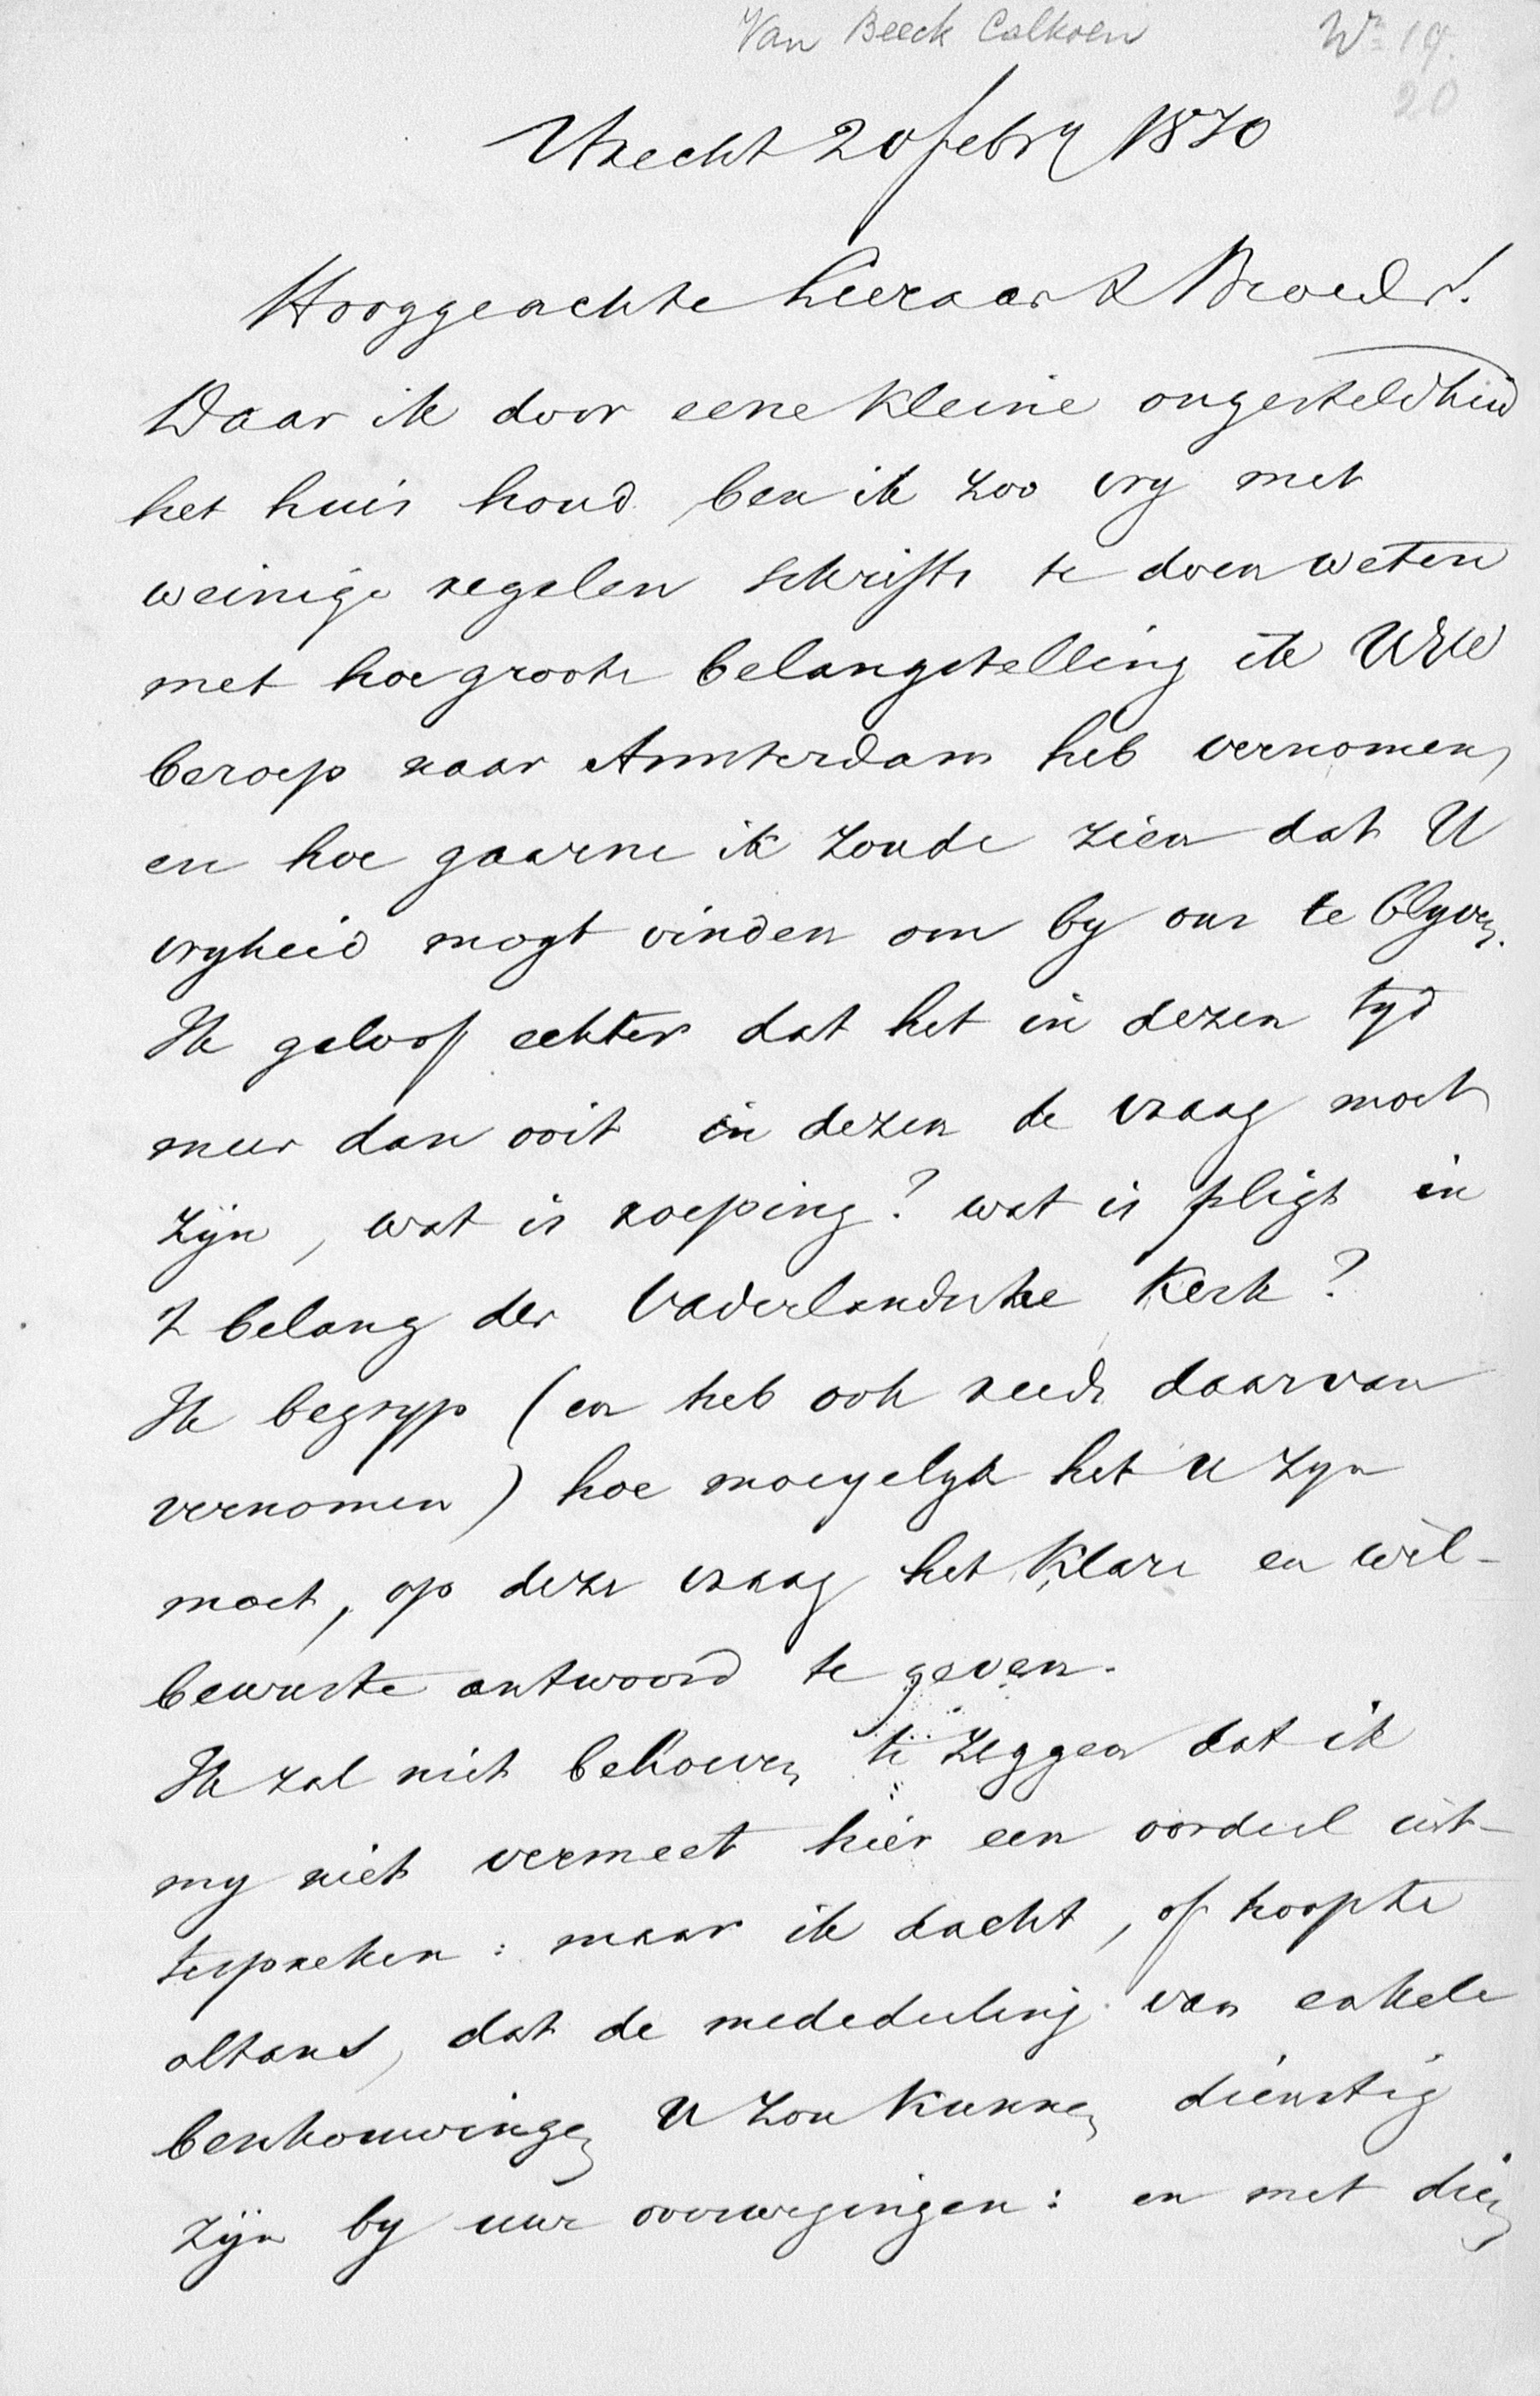 Van Beeck Calkoen
Utrecht 20 febry 1870
Hooggeachte Leeraar & Broeder!
Daar ik door eene kleine ongesteldheid
het huis houd ben ik zoo vry met
weinige regelen schrifts te doen weten
met hoe groote belangstelling ik UWE
beroep naar Amsterdam heb vernomen,
en hoe gaarne ik zoude zien dat U
vryheid mogt vinden om by ons te blyven.
Ik geloof echter dat het in dezen tyd
meer dan ooit in dezen de vraag moet
zÿn, wat is roeping? wat is pligt in
't belang der Vaderlandsche Kerk?
Ik begryp (en heb ook reeds daarvan
vernomen) hoe moeyelyk het U zyn
moet, op deze vraag het klare en wel-
bewuste antwoord te geven.
Ik zal niet behoeven te zeggen dat ik
my niet vermeet hier een oordeel uit-
tespreken: maar ik dacht, of hoopte
altans, dat de mededeeling van enkele
beschouwingen U zou kunnen dienstig
zÿn by uwe overwegingen: en met dien